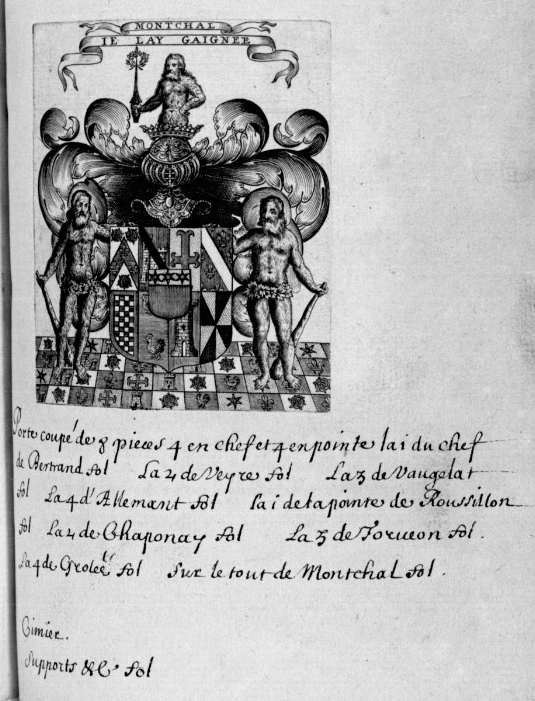 MONTCHAL
IE LAY GAIGNER
Porte coupé de 8 pieces 4 en chef et 4 en pointe la 1 du chef
de Bertrand fol La 2 de Veyre fol La 3 de Vaugelat
fol La 4 d'Allemant fol la 1 de la pointe de Roussillon
fol La 2 de Chaponay fol La 3 de Torueon fol.
La 4 de Grolée fol Sur le tout de Montchal fol.
Cimier.
Supports &c fol